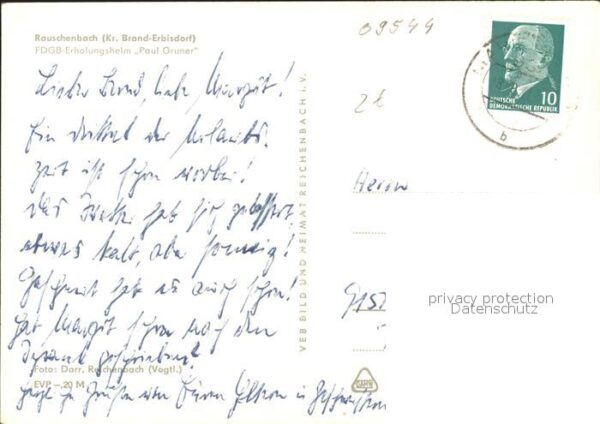 Rauschenbach (Kr. Brand-Erbisdorf)
FDGB-Erholungsheim „Paul Gruner"
09544
10
DEUTSCHE
DEMOKRATISCHE REPUBLIK
b
Lieber Bernd, liebe Margit!
Ein Drittel der Urlaubs-
zeit ist schon vorbei!
Das Wetter hat sich gebessert,
etwas kalt, aber sonnig!
Geschneit hat es auch schon!
Hat Margit schon nach den
geschrieben?
Herzl. Grüße von Euren Eltern u. Geschwistern
Foto: Darr, Reichenbach (Vogtl.)
EVP –,20 M
VEB BILD UND HEIMAT REICHENBACH I. V.
Herrn
9157
privacy protection
Datenschutz